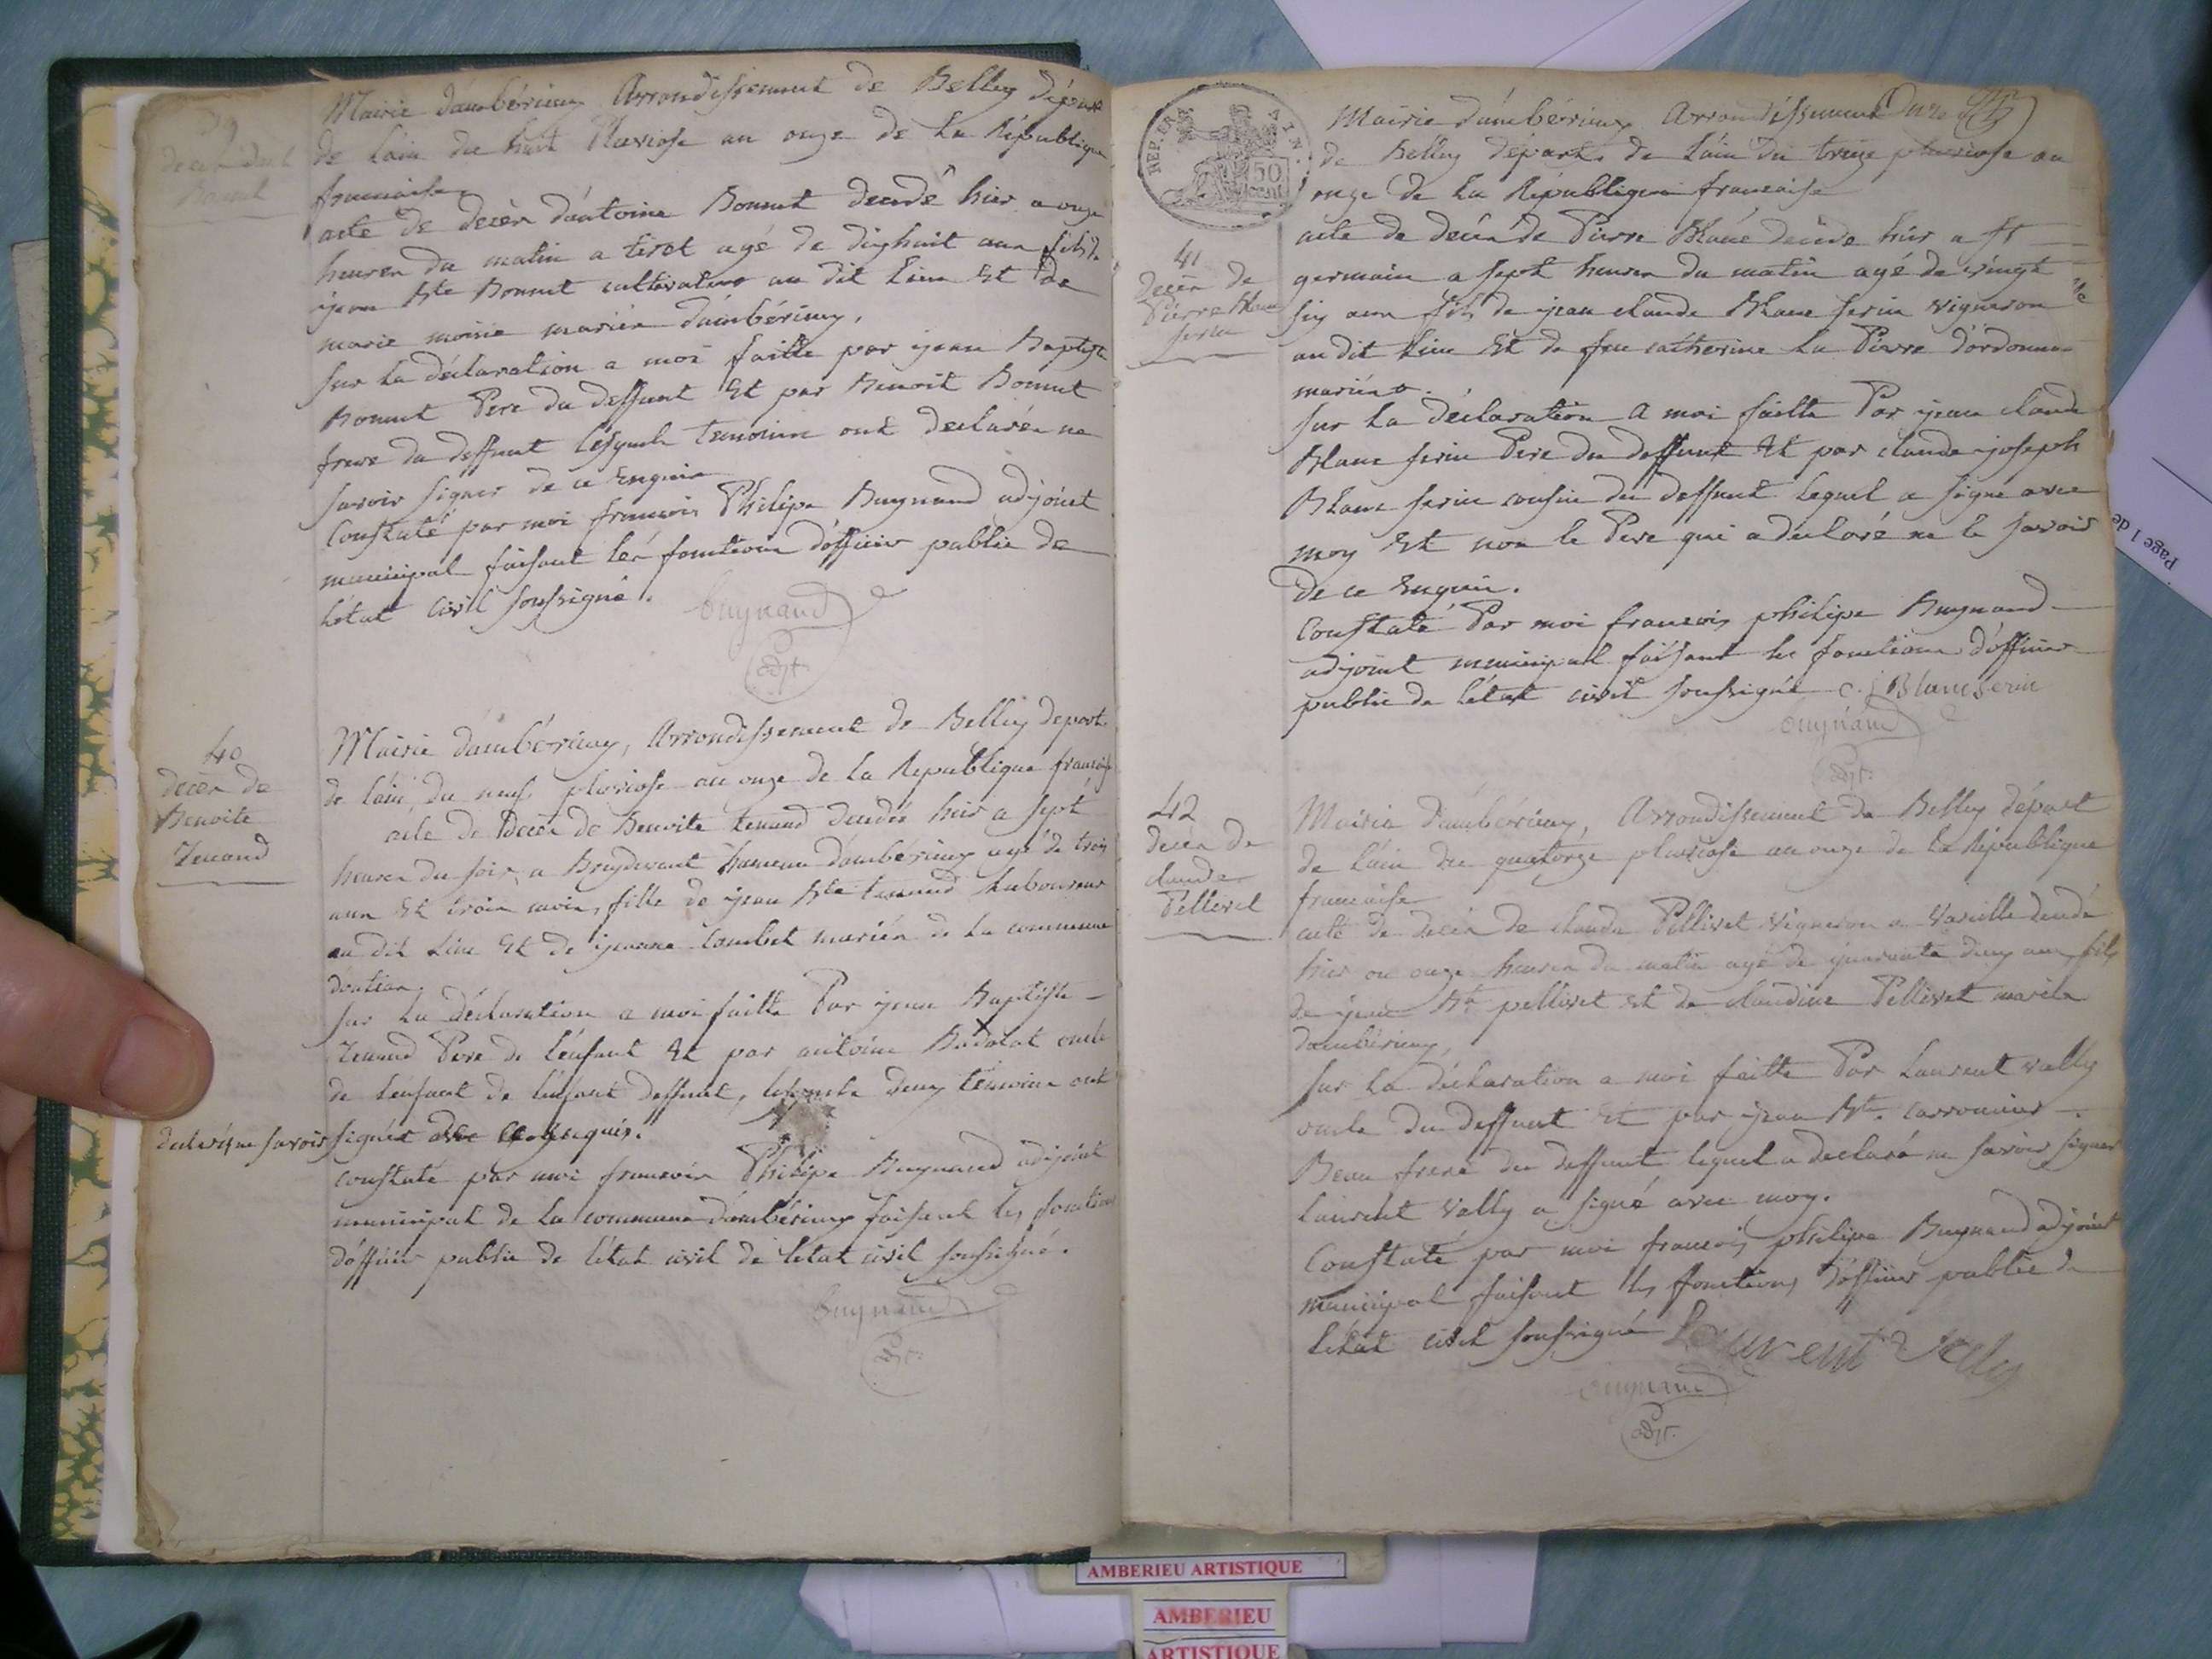 39
Mairie d'ambérieux Arrondissement de Belley départ
de l'ain du huit Pluviose an onze de la République
francaise
acte de decèr d'antoine Bonnet decedé hier a onze
heures du matin a tiret agé de dixhuit ans fils de
jean Bte Bonnet cultivateur au dit lieu Et de
marie moine mariér d'ambérieux,
sur la déclaration a moi faitte par jean Baptiste
Bonnet Pere du deffunt Et par Benoit Bonnet
frere du deffunt lesquels temoins ont declarér ne
savoir signer de ce Enquis
Constaté par moi francois Philipe Bugnand adjoint
municipal faisant lér fonctions d'officier public de
l'etat civil soussigné.
Bugnand
adjt
40
decèr de
Benoite
Tenand
Mairie d'ambérieux, Arrondissement de Belley depart.
de l'ain, du neuf pluviose an onze de la Republique francaise
acte de Decèr de Benoite tenand decedée hier a sept
heures du soir, a Breydevent hameau d'ambérieux agé de trois
ans Et trois mois, fille de jean Bte tenand laboureur
au dit lieu Et de jeanne Combet mariér de la commune
d'outriar
sur la déclaration a moi faitte Par jean Baptiste
Tenand Pere de l'enfant Et par antoine Badolat oncle
de l'enfant de l'enfant deffunt, lesquels deux témoins ont
declaré ne savoir signér de ce Enquis.
Constaté par moi francois Philipe Bugnand adjoint
municipal de la commune d'ambérieux faisant les fonctions
d'officier public de l'état civil de l'etat civil soussigné.
Bugnand
adjt.
REP. FRA. AIN.
50
cent
Onze
Mairie d'ambérieux Arrondissement
de Belley départ. de l'ain du treize pluviose an
onze de la République francaise
41
decèr de
Pierre Blanc
serin
acte de decér de Pierre Blanc decede hier a St
germain a sept heures du matin agé de vingt
six ans fils de jean claude Blanc serin vigneron
au dit lieu Et de feu catherine la Pierre d'ordonna
mariér
sur la déclaration a moi faitte Par jean claude
Blanc serin Pere du deffunt Et par claude joseph
Blanc serin cousin du deffunt lequel a signé avec
moy Et non le Pere qui a déclaré ne le savoir
de ce Enquis.
Constaté Par moi francois philipe Bugnand
adjoint municipal faisant les fonctions d'officier
public de l'état civil soussigné c. j Blanc serin
Bugnand
adjt.
42
decèr de
claude
Pellevet
Mairie d'ambérieux, Arrondissement de Belley départ
de l'ain du quatorze pluviose an onze de la République
francaise
acte de decér de claude Pellivet vigneron a Vareille decedé
hier on onze heures du matin agé de quarante deux ans fils
de jean Bte pellivet Et de claudine Pellivet mariér
d'ambérieux,
sur la déclaration a moi faitte Par Laurent vally
oncle du deffunt Et par jean Bte. carronnier
Beau frere du deffunt lequel a declaré ne savoir signer
laurent vally a signé avec moy.
Constaté par moi francois philipe Bugnand adjoint
municipal faisant les fonctions d'officier public de
l'état civil soussigné Laurent Vally
Bugnand
adjt.
Page 1 de
AMBERIEU ARTISTIQUE
AMBERIEU
ARTISTIQUE